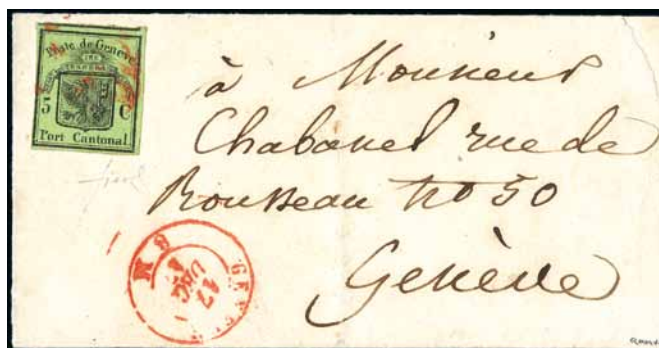 Poste de Genève
5 C
Port Cantonal
à Monsieur
Chabanel rue de
Rousseau No 50
Genève
17